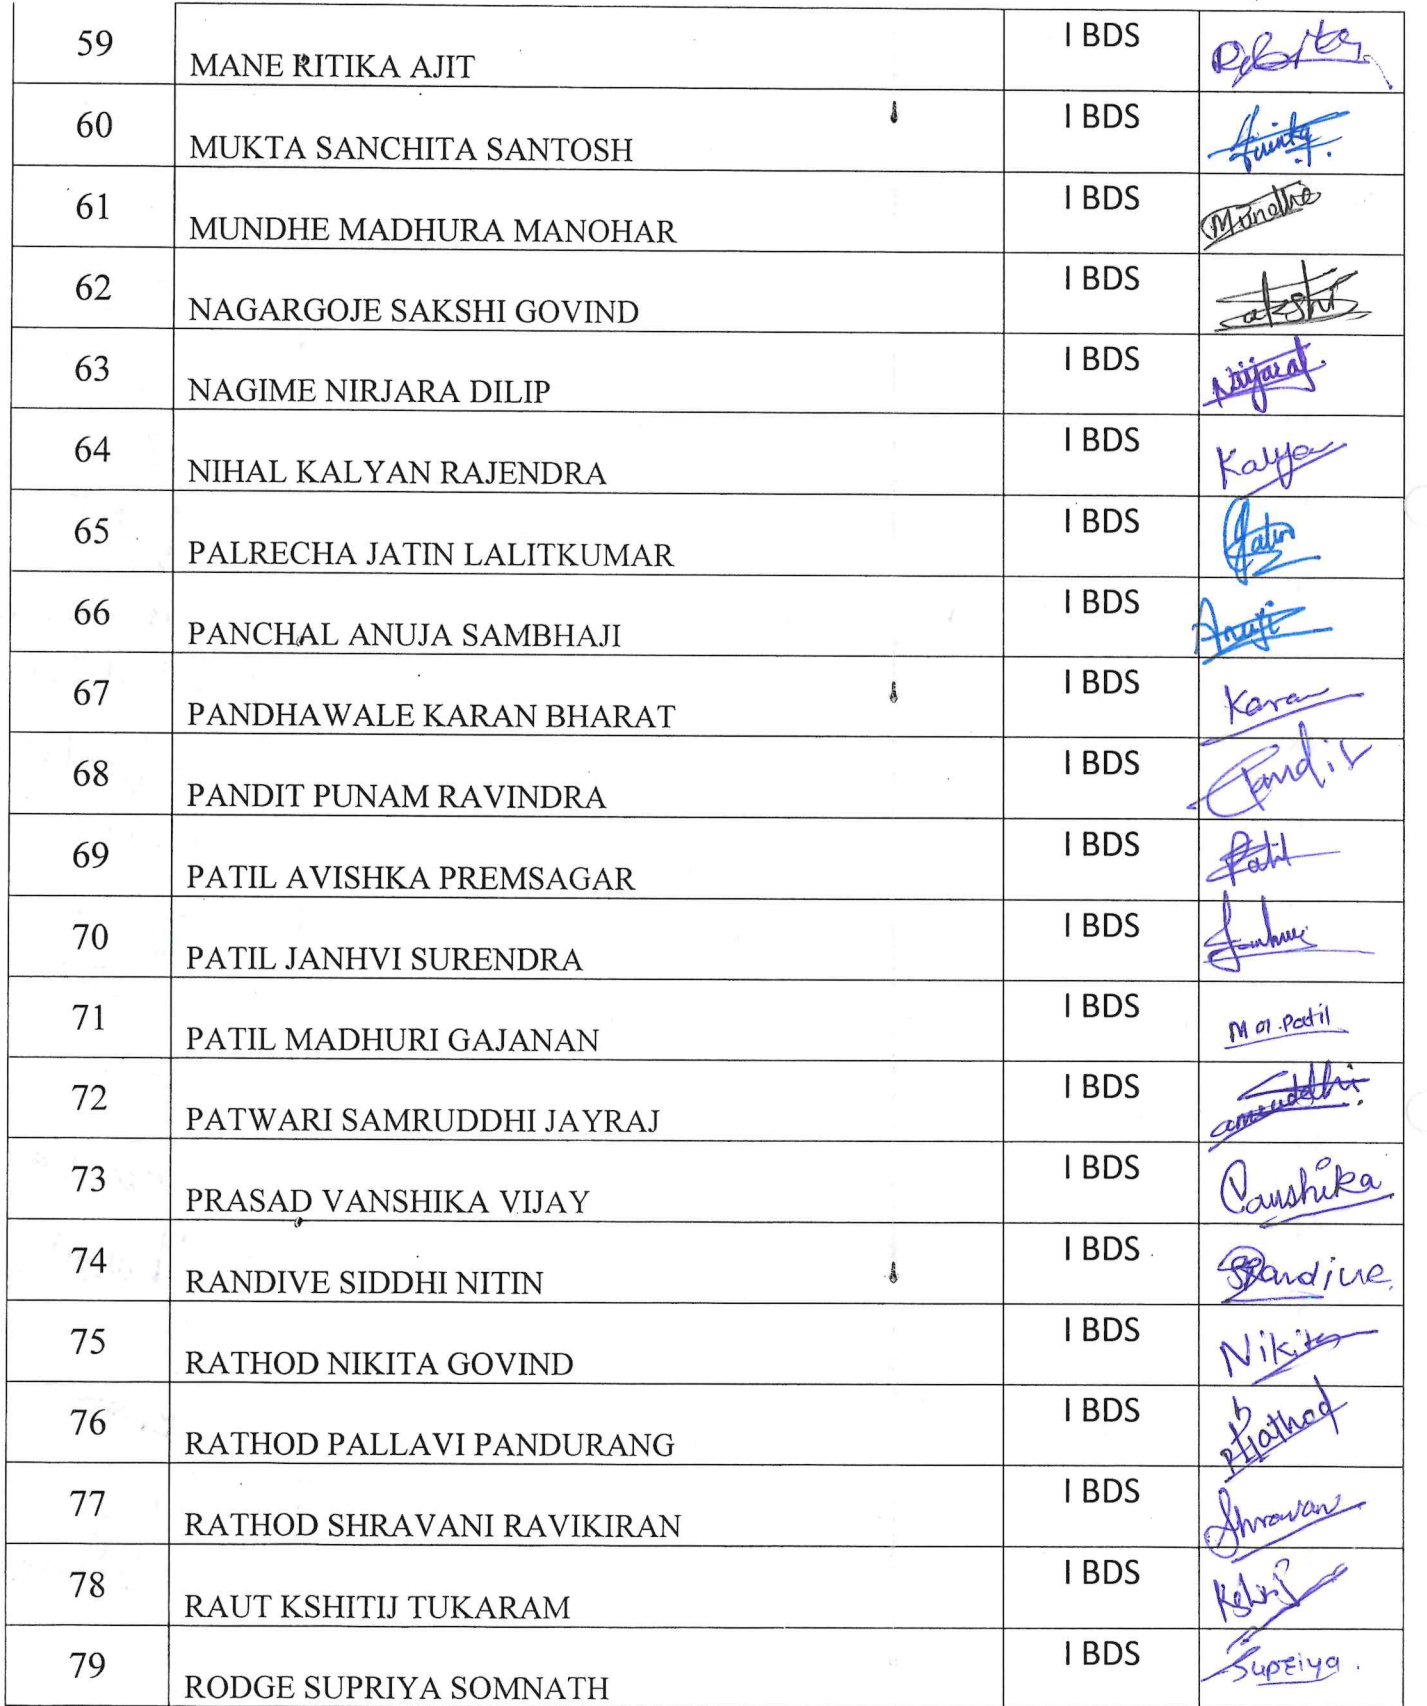 59 MANE RITIKA AJIT I BDS
60 MUKTA SANCHITA SANTOSH I BDS
61 MUNDHE MADHURA MANOHAR I BDS Mundhe
62 NAGARGOJE SAKSHI GOVIND I BDS
63 NAGIME NIRJARA DILIP I BDS
64 NIHAL KALYAN RAJENDRA I BDS
65 PALRECHA JATIN LALITKUMAR I BDS Jatin
66 PANCHAL ANUJA SAMBHAJI I BDS
67 PANDHAWALE KARAN BHARAT I BDS Karan
68 PANDIT PUNAM RAVINDRA I BDS Pandit
69 PATIL AVISHKA PREMSAGAR I BDS Patil
70 PATIL JANHVI SURENDRA I BDS
71 PATIL MADHURI GAJANAN I BDS
72 PATWARI SAMRUDDHI JAYRAJ I BDS
73 PRASAD VANSHIKA VIJAY I BDS Vanshika
74 RANDIVE SIDDHI NITIN I BDS
75 RATHOD NIKITA GOVIND I BDS Nikita
76 RATHOD PALLAVI PANDURANG I BDS
77 RATHOD SHRAVANI RAVIKIRAN I BDS
78 RAUT KSHITIJ TUKARAM I BDS
79 RODGE SUPRIYA SOMNATH I BDS Supriya